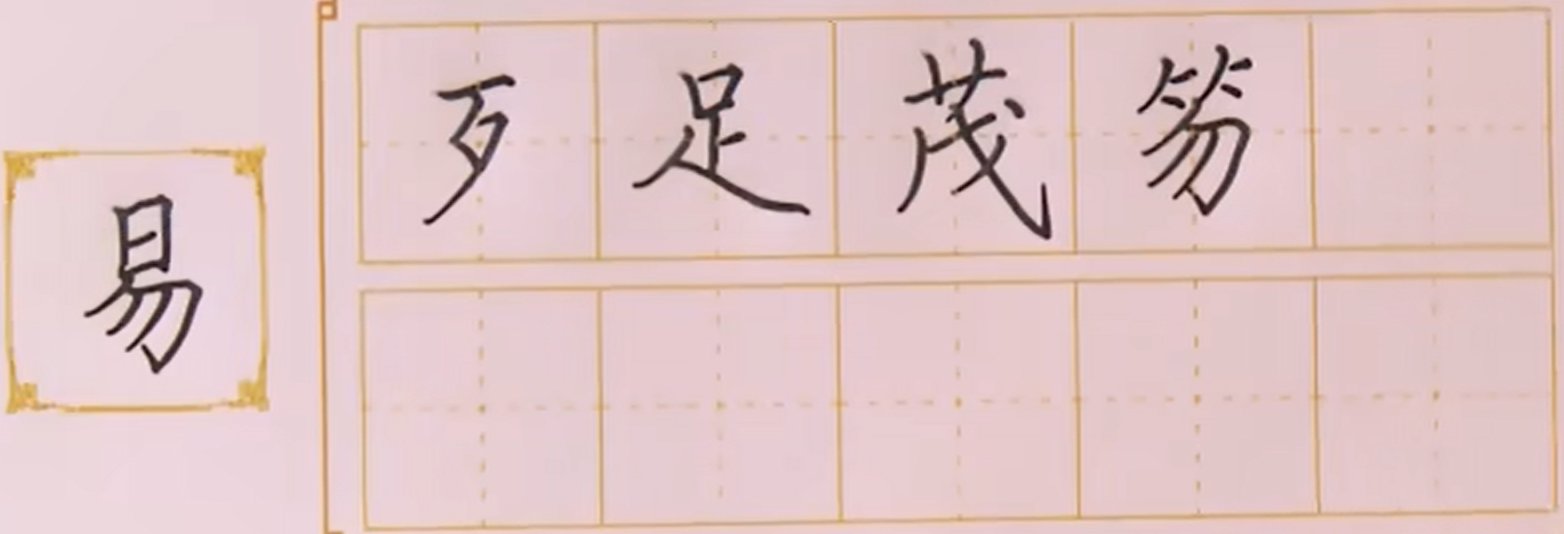 易
歹足茂笏